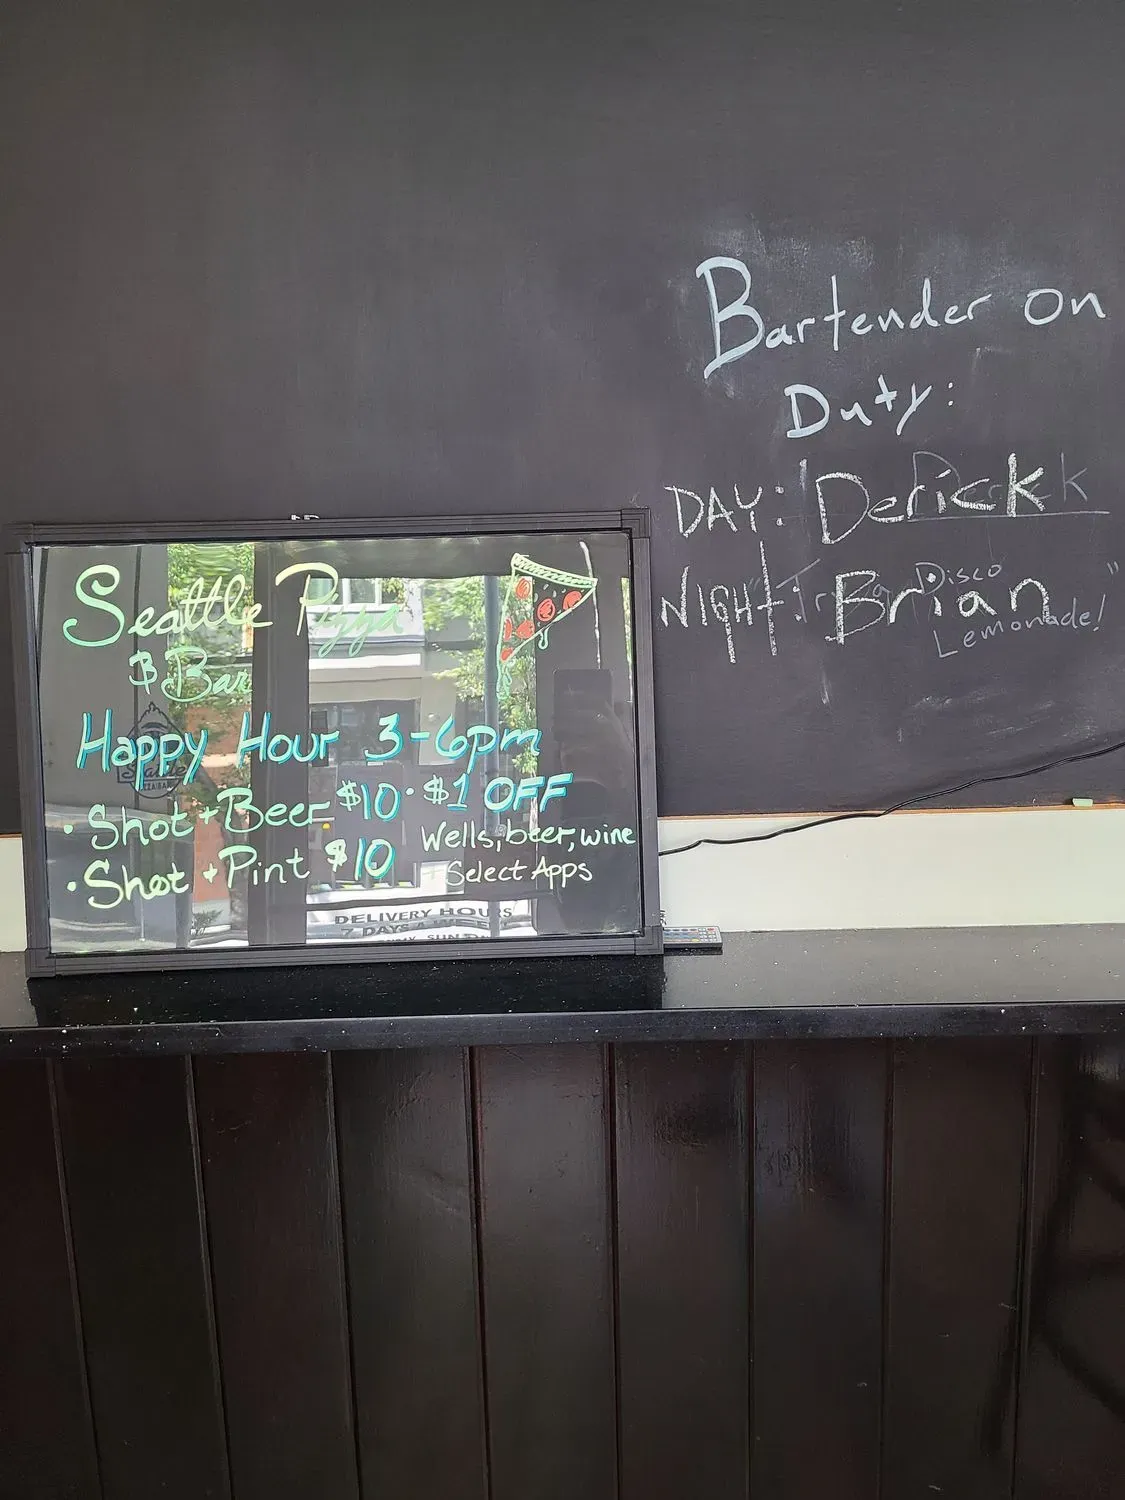 Bartender on
Duty:
DAY: Derick
NIGHT: Brian
Disco
Lemonade!
Seattle Pizza
& Bar
Happy Hour 3-6pm
• Shot + Beer $10 • $1 OFF
Wells, beer, wine
• Shot + Pint $10
+ Select Apps
DELIVERY HOURS
7 DAYS A WEEK